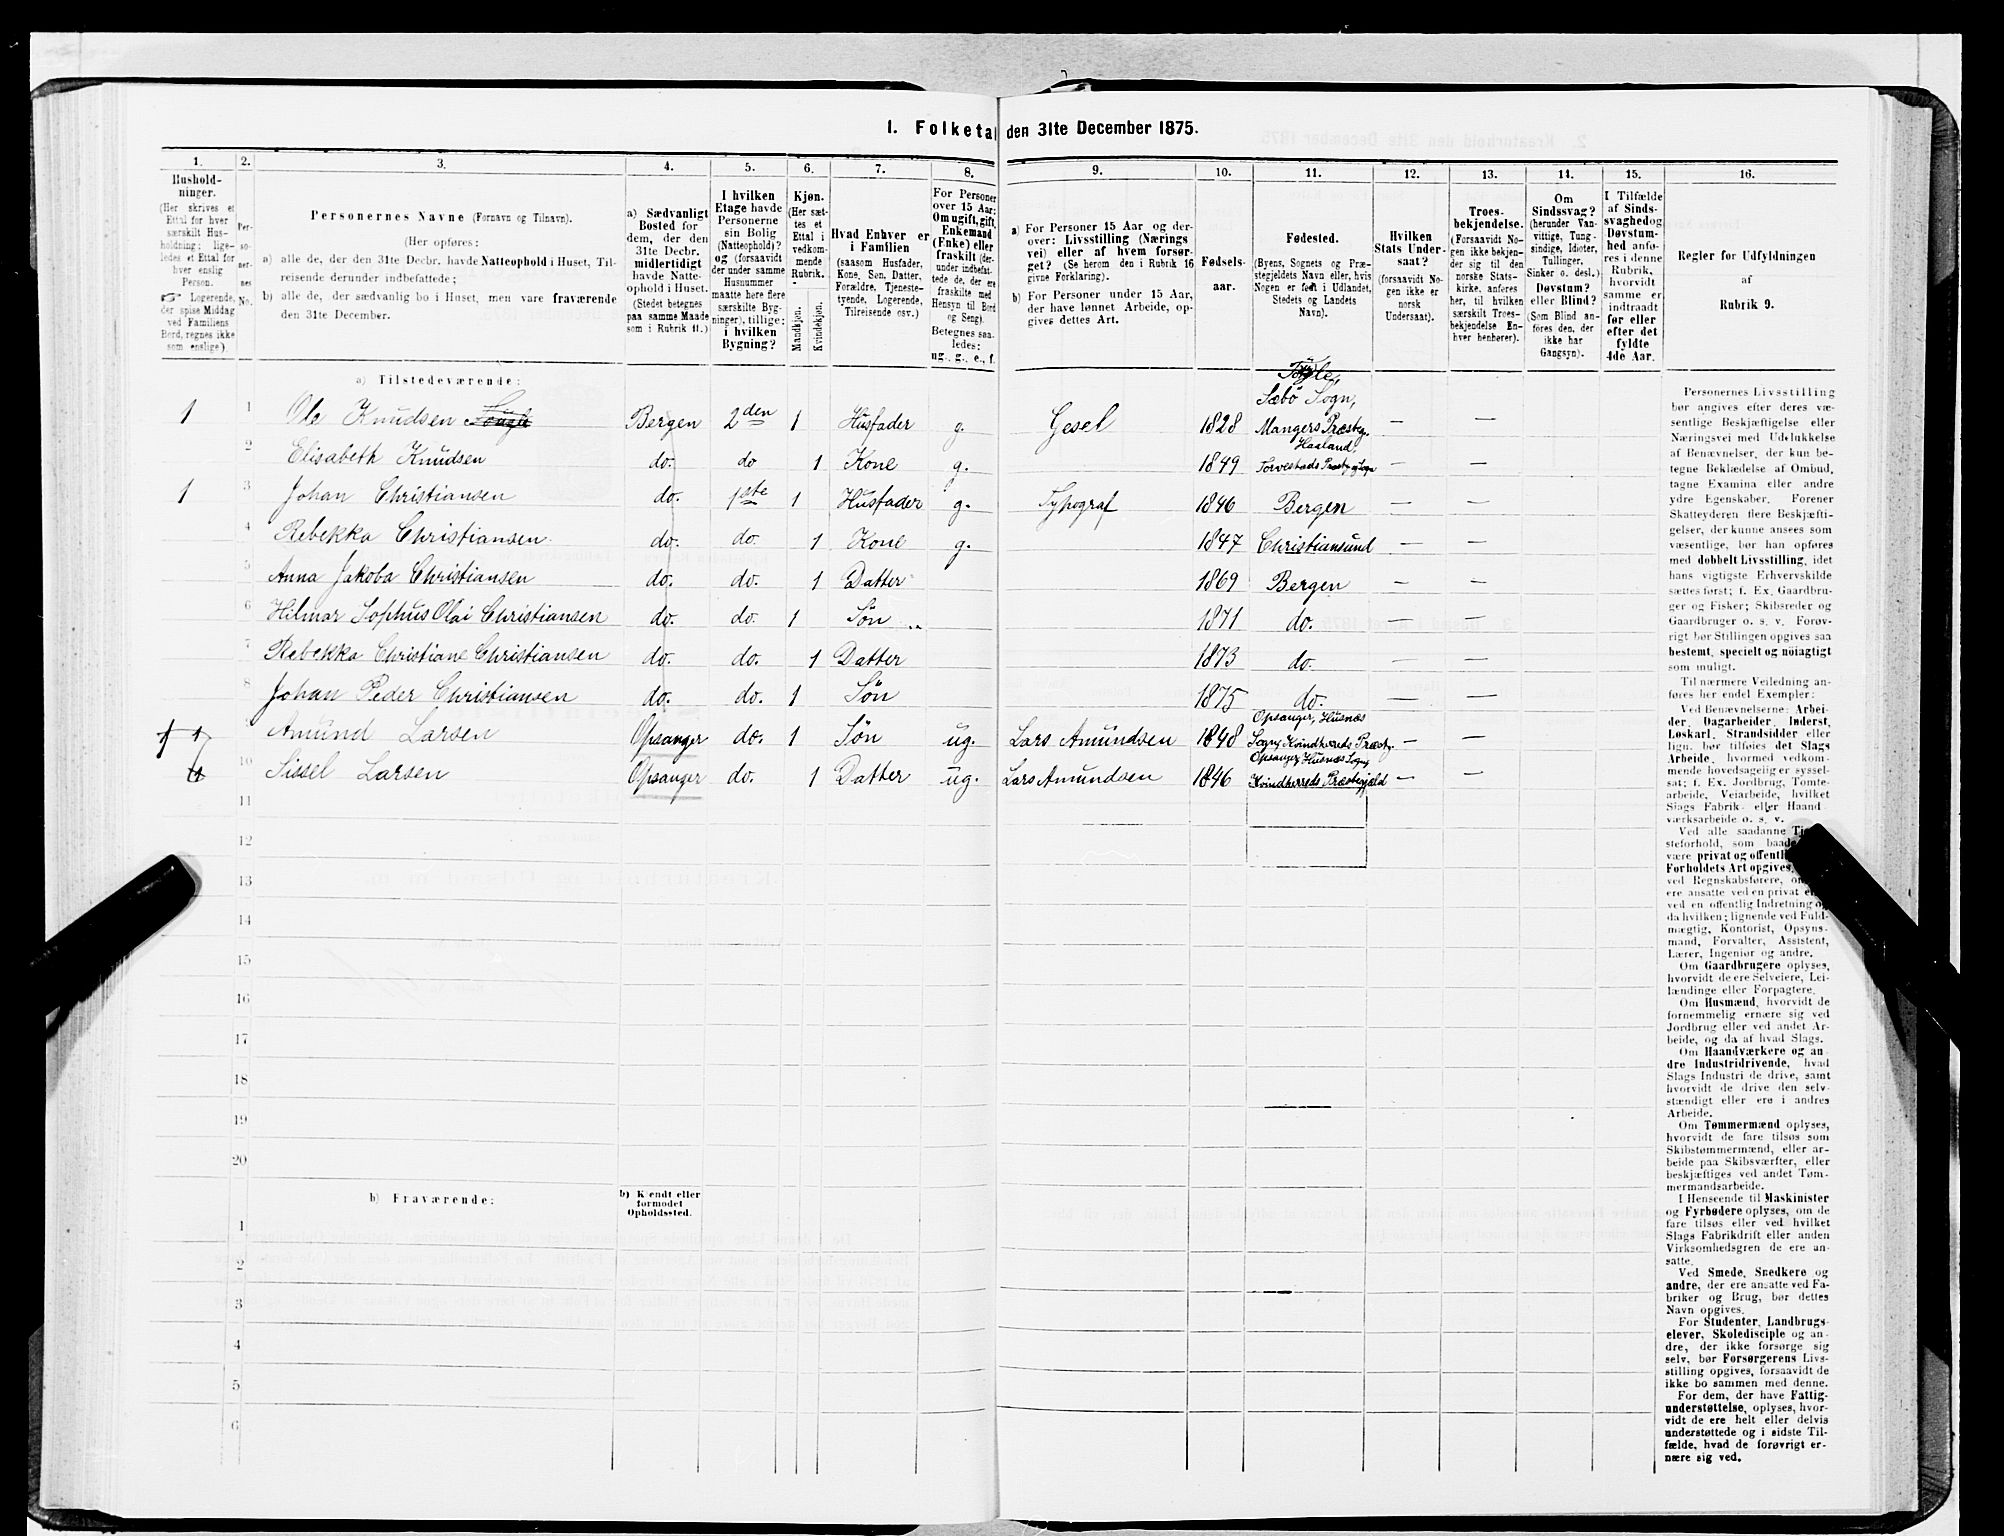 1. Folketa den 31te December 1875.
1. 2. 3. 4. 5. 6. 7. 8. 9. 10. 11. 12. 13. 14. 15. 16.
Hushold-
ninger.
(Her skrives et
Ettal for hver
særskilt Hus-
holdning; lige-
ledes et Ettal for
hver enslig
Person.
☞ Logerende,
der spise Middag
ved Familiens
Bord, regnes ikke
som enslige).
Per-
so-
ner-
nes
No.
Personernes Navne (Fornavn og Tilnavn).
(Her opføres:
a) alle de, der den 31te Decbr. havde Natteophold i Huset, Til-
reisende derunder indbefattede;
b) alle de, der sædvanlig bo i Huset, men vare fraværende
den 31te December.
a) Sædvanligt
Bosted for
dem, der den
31te Decbr.
midlertidigt
havde Natte-
ophold i Huset.
(Stedet betegnes
paa samme Maade
som i Rubrik 11.)
I hvilken
Etage havde
Personerne
sin Bolig
(Natteophold)?
og (forsaavidt
der under samme
Husnummer
maatte høre flere
særskilte Byg-
ninger), tillige:
i hvilken
Bygning?
Kjøn.
(Her sæt-
tes et
Ettal i
vedkom-
mende
Rubrik.
Mandkjøn.
Kvindekjøn.
Hvad Enhver er
i Familien
(saasom Husfader,
Kone, Søn, Datter,
Forældre, Tjeneste-
tyende, Logerende,
Tilreisende osv.)
For Personer
over 15 Aar:
Om ugift, gift,
Enkemand
(Enke) eller
fraskilt (der-
under indbefat-
tede de, der ere
fraskilte med
Hensyn til Bord
og Seng).
Betegnes saa-
ledes:
ug., g., e., f.
a) For Personer 15 Aar og der-
over: Livsstilling (Nærings
vei) eller af hvem forsør-
get? (Se herom den i Rubrik 16
givne Forklaring).
b) For Personer under 15 Aar,
der have lønnet Arbeide, op-
gives dettes Art.
Fødsels-
aar.
Fødested.
(Byens, Sognets og Præ-
stegjeldets Navn eller, hvis
Nogen er født i Udlandet,
Stedets og Landets
Navn).
Hvilken
Stats Under-
saat?
(forsaavidt No-
gen ikke er
norsk
Undersaat).
Troes-
bekjendelse.
(Forsaavidt No-
gen ikke bekjen-
der sig til den
norske Stats-
kirke, anføres
her, til hvilken
særskilt Troes-
bekjendelse En-
hver henhører).
Om
Sindssvag?
(herunder Van-
vittige, Tung-
sindige, Idioter,
Tullinger,
Sinker o. desl.)
Døvstum?
eller Blind?
(Som Blind an-
føres den, der
ikke har
Gangsyn).
I Tilfælde
af Sinds-
svaghed og
Døvstum-
hed anfø-
res i denne
Rubrik,
hvorvidt
samme er
indtraadt
før eller
efter det
fyldte
4de Aar.
Regler for Udfyldningen
af
Rubrik 9.
a) Tilstedeværende:
Sæbö Sogn,
1 1 Ole Knudsen Bergen 2den 1 Husfader g. Gesel 1828 Mangers Præstg. — —
Hasland,
2 Elisabeth Knudsen do. do 1 Kone g. 1849 Torvestads Præstg og Sogn — —
1 3 Johan Christiansen do. 1ste 1 Husfader g. Typograf 1846 Bergen — —
4 Rebekka Christiansen do. do. 1 Kone g. 1847 Christiansund — —
5 Anna Jakoba Christiansen do. do. 1 Datter 1869 Bergen — —
6 Hilmar Sophus Olai Christiansen do. do. 1 Søn 1871 do. — —
7 Rebekka Christiane Christiansen do. do. 1 Datter 1873 do. — —
8 Johan Peder Christiansen do. do. 1 Søn 1875 do. — —
Opsanger, Husnæs
9 Amund Larsen Opsanger do. 1 Søn ug. Lars Amundsen 1848 Sogn, Kvindherreds Præstg. — —
Opsanger, Husnæs Sogn,
10 Sissel Larsen Opsanger do. 1 Datter ug. Lars Amundsen 1846 Kvindherreds Præstegjæld — —
11
12
13
14
15
16
17
18
19
20
b) Fraværende:
b) Kjendt eller
formodet
Opholdssted.
1
2
3
4
5
6
Personernes Livsstilling
bør angives efter deres væ-
sentlige Beskjæftigelse eller
Næringsvei med Udelukkelse
af Benævnelser, der kun be-
tegne Beklædelse af Ombud,
tagne Examina eller andre
ydre Egenskaber. Forener
Skatteyderen flere Beskjæfti-
gelser, der kunne ansees som
væsentlige, bør han opføres
med dobbelt Livsstilling, idet
hans vigtigste Erhvervskilde
sættes først; f. Ex. Gaardbru-
ger og Fisker; Skibsreder og
Gaardbruger o. s. v. Forøv-
rigt bør Stillingen opgives saa
bestemt, specielt og nøiagtigt
som muligt.
Til nærmere Veiledning an-
føres her endel Exempler:
Ved Benævnelserne: Arbei-
der, Dagarbeider, Inderst,
Løskarl, Strandsidder eller
lign. bør tilføies det Slags
Arbeide, hvormed vedkom-
mende hovedsagelig er syssel-
sat; f. Ex. Jordbrug, Tomte-
arbeide, Veiarbeide, hvilket
Slags Fabrik- eller Haand-
værksarbeide o. s. v.
Ved alle saadanne
steforhold, som
være privat og
Forholdets Art opgives,
ved Regnskabsførere,
ere ansatte ved en privat
ved en offentlig Indretning
da hvilken; lignende ved Fuld-
mægtig, Kontorist, Opsyns-
mand, Forvalter, Assistent,
Lærer, Ingeniør og andre.
Om Gaardbrugere oplyses,
hvorvidt de ere Selveiere, Lei-
lændinge eller Forpagtere.
Om Husmænd, hvorvidt de
fornemmelig ernære sig ved
Jordbrug eller ved andet Ar-
beide, og da af hvad Slags.
Om Haandværkere og an-
dre Industridrivende, hvad
Slags Industri de drive, samt
hvorvidt de drive den selv-
stændigt eller ere i andres
Arbeide.
Om Tømmermænd oplyses,
hvorvidt de fare tilsøs som
Skibstømmermænd, eller ar-
beide paa Skibsværfter, eller
beskjæftiges ved andet Tøm-
mermandsarbeide.
I Henseende til Maskinister
og Fyrbødere oplyses, om de
fare tilsøs eller ved hvilket
Slags Fabrikdrift eller anden
Virksomhedsgren de ere an-
satte.
Ved Smede, Snedkere og
andre, der ere ansatte ved Fa-
briker og Brug, bør dettes
Navn opgives.
For Studenter, Landbrugs-
elever, Skoledisciple og an-
dre, der ikke forsørge sig
selv, bør Forsørgerens Livs-
stilling opgives, forsaavidt de
ikke bo sammen med denne.
For dem, der have Fattig-
understøttelse, oplyses, hvor-
vidt de ere helt eller delvis
understøttede og i sidste Til-
fælde, hvad de forøvrigt er-
nære sig ved.